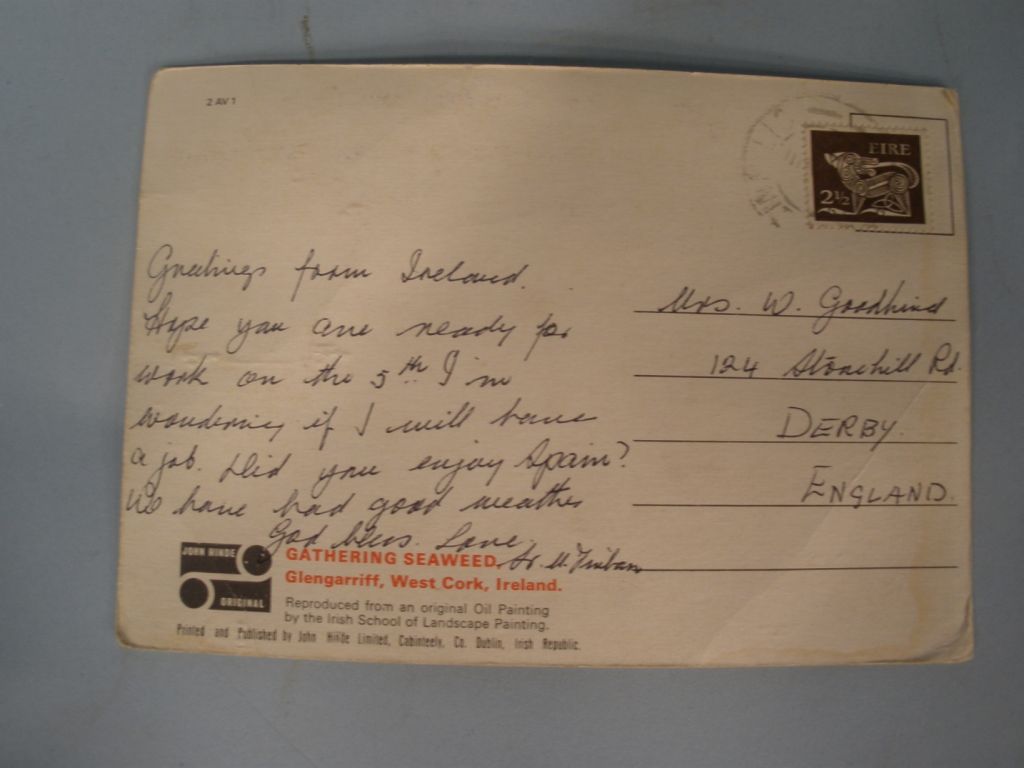 2 AV 1
EIRE
2½
Greetings from Ireland.
Hope you are ready for
work on the 5th I'm
wondering if I will have
a job. Did you enjoy Spain?
We have had good weather
God bless. Love,
Sr. M. Finbarr
Mrs. W. Goodhind
124 Stonehill Rd.
DERBY.
ENGLAND.
JOHN HINDE
ORIGINAL
GATHERING SEAWEED,
Glengarriff, West Cork, Ireland.
Reproduced from an original Oil Painting
by the Irish School of Landscape Painting.
Printed and Published by John Hinde Limited, Cabinteely, Co. Dublin, Irish Republic.